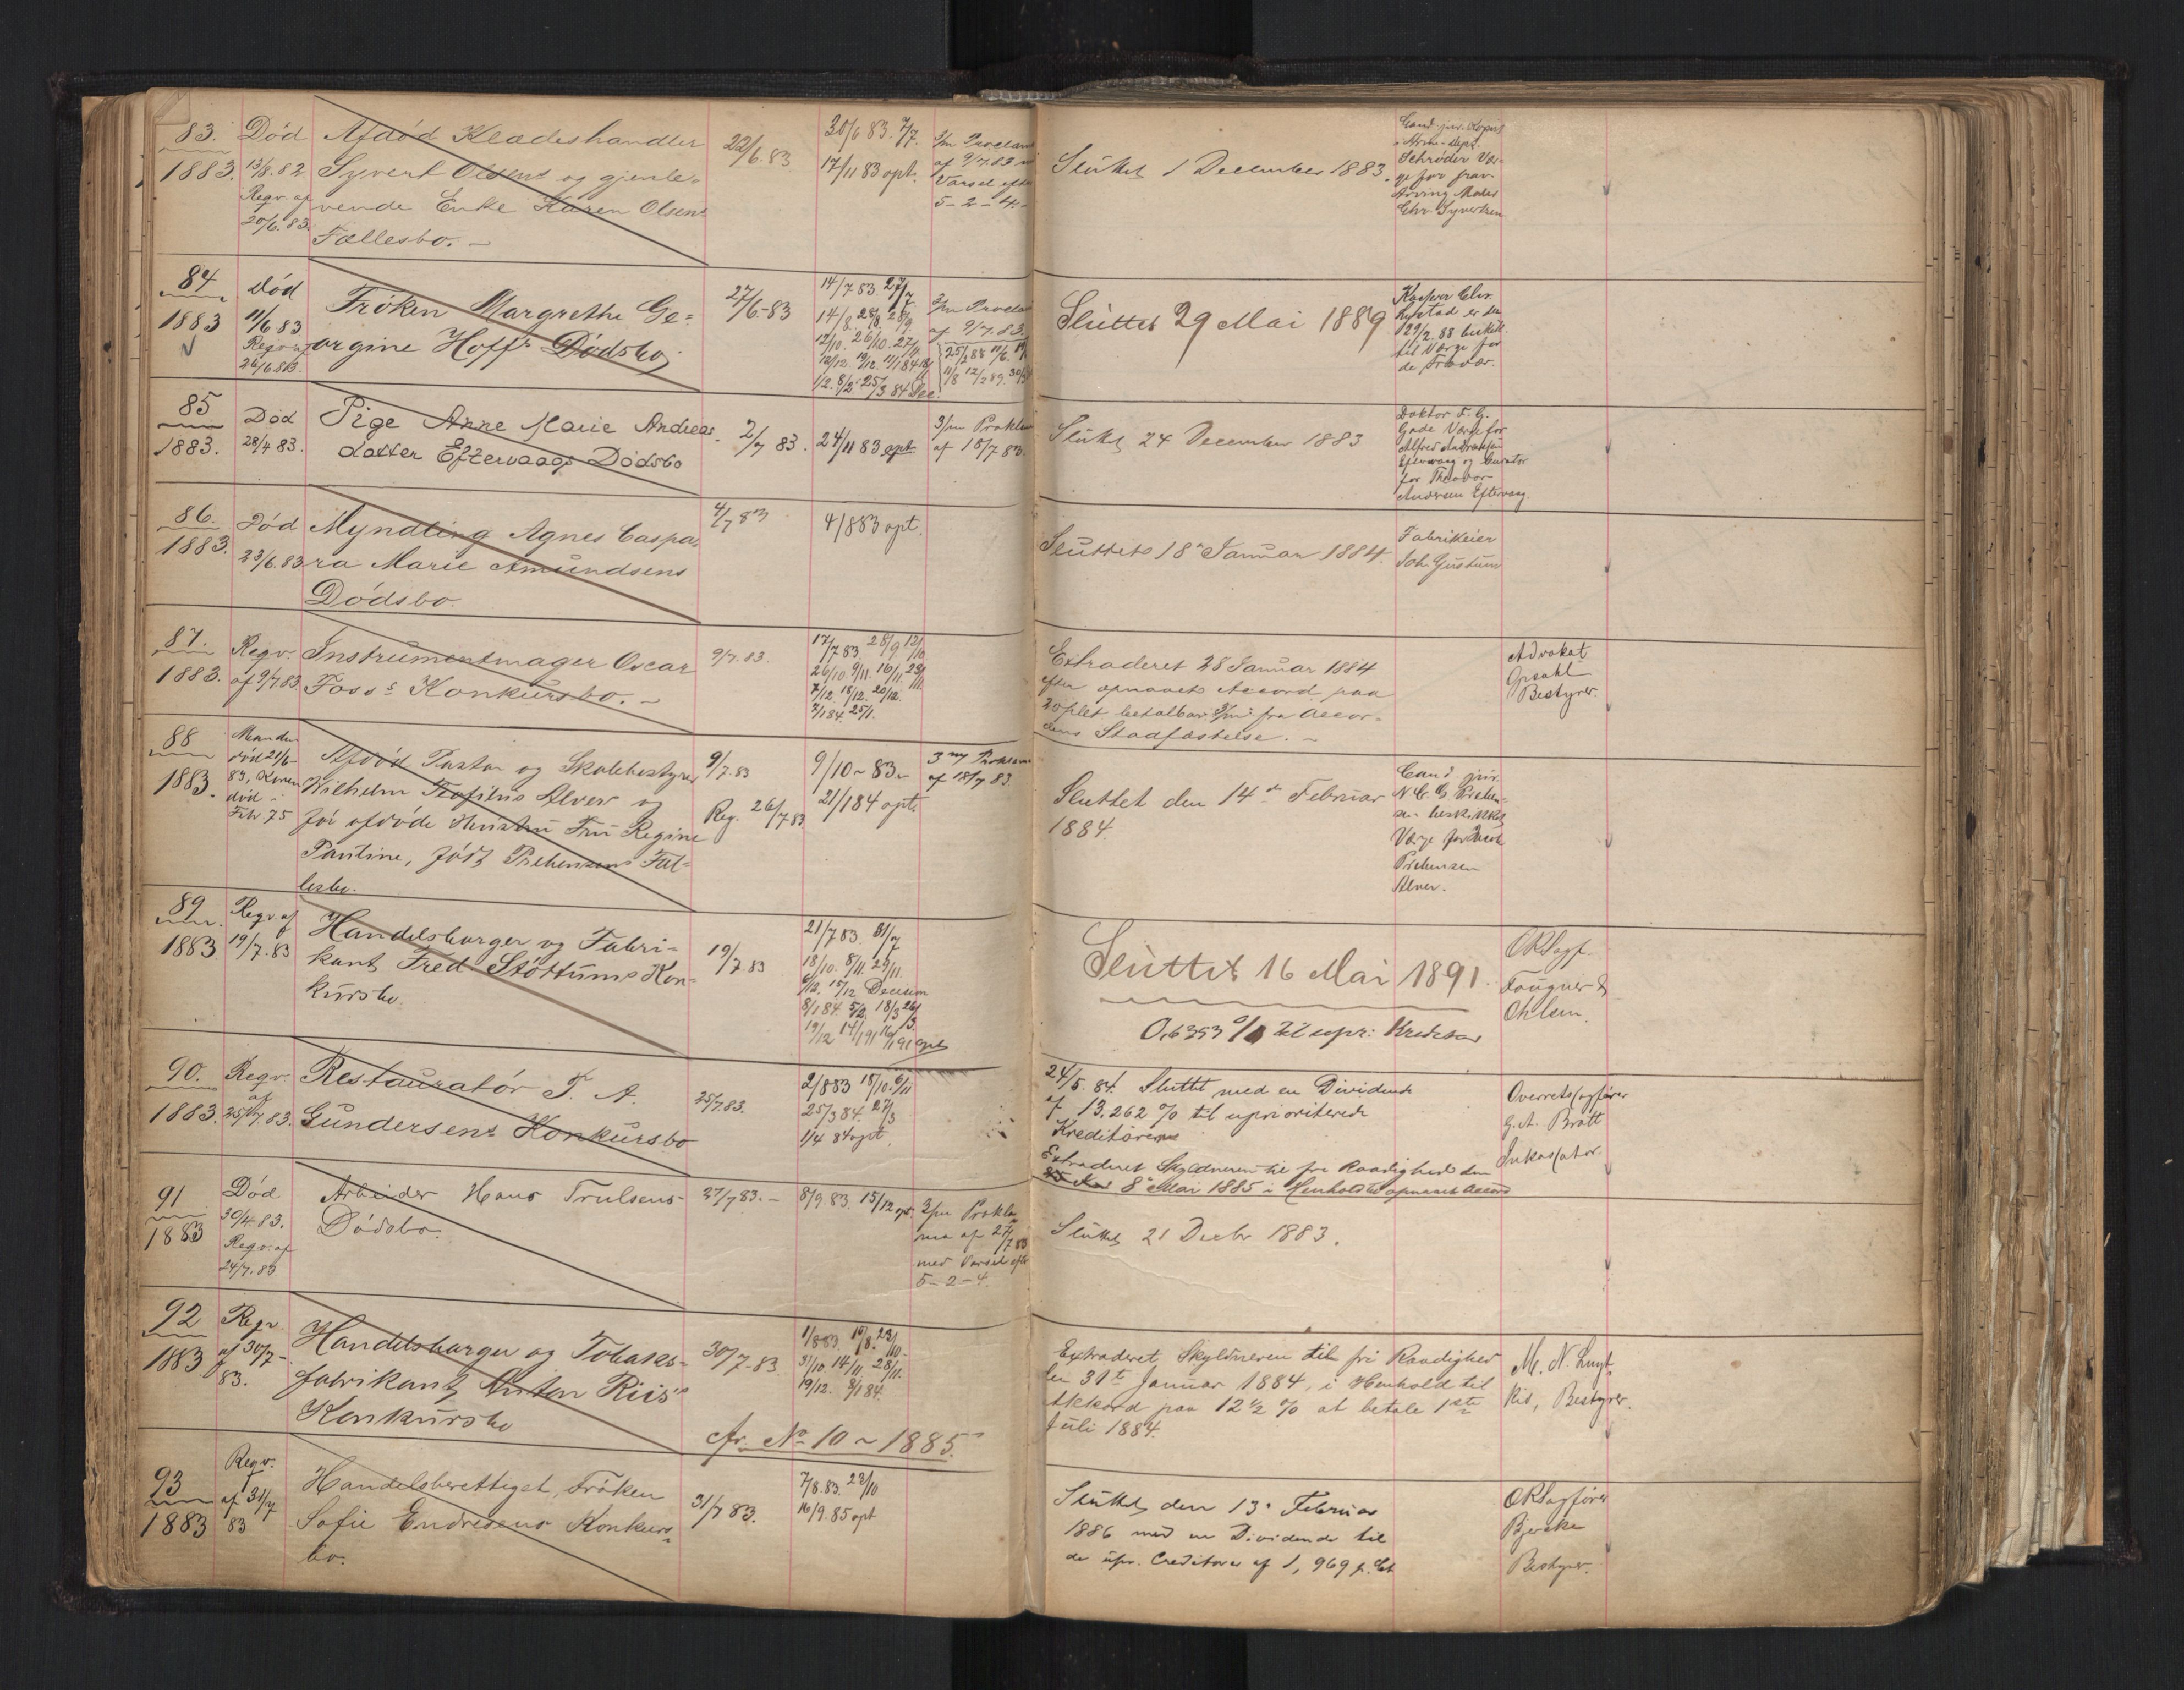 83.
1883.
Död
13/8.82
Regv. af
20/6.83.
Afdöd Klædeshandler
Syvert Olsens og gjenle-
vende Enke Karen Olsens
Fællesbo.
22/6.83
30/6 83. 7/7.
17/11 83 opt.
3/m Proclam
af 9/7.83 m
Varsel efter
5-2-4.
Sluttet 1 December 1883.
Cand. jur. Kopist
Schröder Vær-
ge for frav.
Arving Mades
Chr. Syvertsen
84
1883
död
11/6 83
Regv. af
26/6.83.
Fröken Margrethe Ge=
orgine Hoffs Dödsbo
27/6-83
14/7 83. 27/7
14/8. 28/8. 28/9
12/10. 26/10. 27/11
1/2. 8/2. 25/3 84 Dec.
3/m Procla
af 9/7.83.
Sluttet 29 Mai 1889
Kasper Chr.
til Værge for
de Fravær.
85
1883.
Död
28/4 83.
Pige Anne Marie Andreas-
datter Eftervaags Dödsbo
2/7 83.
24/11 83 opt.
3/m Proklam
af 15/7 83.
Sluttet 24 December 1883
Doktor F. G.
Gade Værge for
Alfred Andreasen
Eftervaag og Curator
for Theodor
Andersen Eftervaag.
86.
1883.
Död
23/6.83
Myndling Agnes Caspa-
ra Marie Amundsens
Dödsbo.
4/7 83
4/8 83 opt.
Sluttet 18de Januar 1884.
Fabrikeier
Joh. Gustum
87.
1883.
Regv.
af 9/7 83
Instrumentmager Oscar
Foss's Konkursbo.
9/7.83.
17/7 83. 28/9 12/10
26/10. 9/11. 16/11. 23/11
7/12. 15/12. 20/12.
7/1 84 25/1.
Extraderet 28 Januar 1884
efter opnaaet Accord paa
20 pCt betalbar 3/m fra Accor-
dens Stadfæstelse.
Advokat
Gpsahl
Bestyrer.
88
1883.
Manden
död 21/6-
83, Konen
död
Febr 75
Afdöd Pastor og Skolebestyrer
Wilhelm Teofilus Alver og
för afdöde Hustru Fru Regine
Pauline, födt Prebensens Fæl-
lesbo.
9/7.83
Reg. 26/7 83
9/10-83
21/1 84 opt.
3 m Proklam
af 18/7 83.
Sluttet den 14de Februar
1884.
Cand. jur.
N. C. G. Preben-
sen beskikket
Værge for Jacob
Prebensen
Alver.
89
1883
Regv. af
19/7.83
Handelsborger og Fabri-
kant Fred. Störtums Kon-
kursbo
19/7.83
21/7 83. 31/7
18/10. 8/11. 29/11.
6/12. 15/12 Decism
8/1 84. 5/2. 18/3 26/3
19/12 14/1 91 16/1 91 opt
Sluttet 16 Mai 1891.
0,6353 % til upr: Kreditor
ORSagf.
Fougner &
Ohlsen.
90.
1883.
Regv.
af
25/7 83.
Restauratör T. A.
Gundersens Konkursbo
25/7.83.
2/8 83 18/10. 6/11
25/3 84. 27/3
1/4 84 opt.
24/5.84. Sluttet med en Dividende
af 13,262 % til uprioriterede
Kreditorer
Extraderet Skyldneren til fri Raadighed den
8de Mai 1885 i Henhold til opnaaet Accord
Overretssagförer
G. A. Bratt
Inkassator.
91
1883
Död
30/4.83.
Regv. af
24/7.83
Arbeider Hans Trulsens
Dödsbo.
27/7 83.
8/9.83. 15/12 opt
3/m Prokla-
ma af 27/7 83
med Varsel efter
5-2-4.
Sluttet 21 Decbr 1883.
92
1883
Regv
af 30/7-
83.
Handelsborger og Tobaks-
fabrikant Anton Riis's
Konkursbo
30/7-83
1/8 83. 10/8. 23/10.
31/10 14/11. 28/11.
19/12. 8/1 84.
cfr. No 10 - 1885.
Extraderet Skyldneren til fri Raadighed
den 31te Januar 1884, i Henhold til
Akkord paa 12 1/2 % at betale 1ste
Juli 1884.
M. N. Luyt-
kis, Bestyrer.
93
1883
Regv.
af 31/7
83
Handelsberettiget, Fröken
Sofie Endresens Konkurs-
bo.
31/7 83.
7/8.83. 23/10
16/9.85 opt
Sluttet den 13de Februar
1886 med en Dividende til
de upr. Creditorer af 1,969 p. Ct
ORSagförer
Bjercke
Bestyrer.